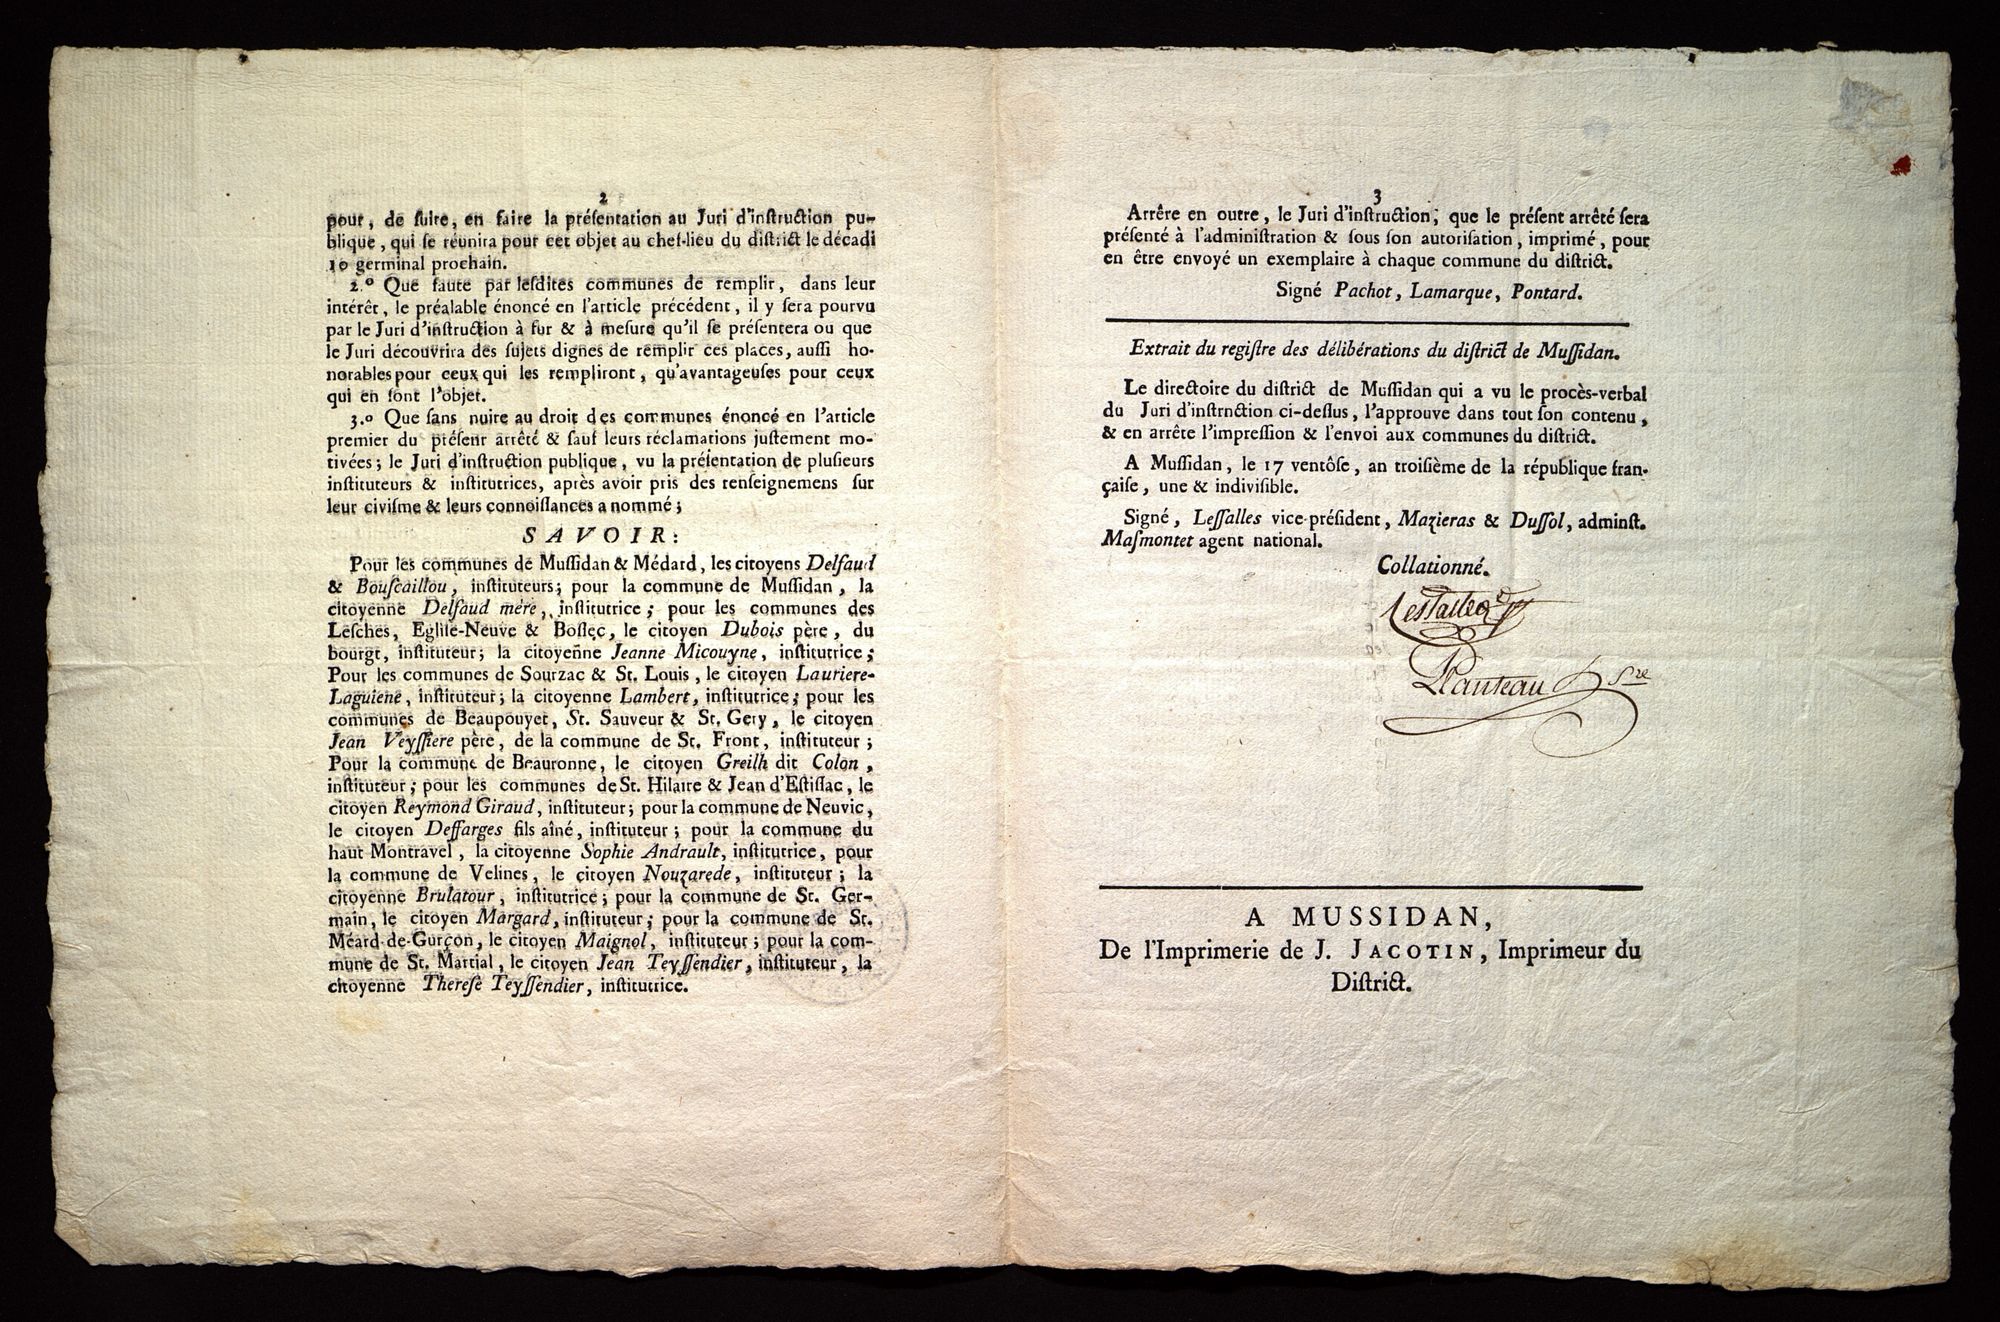 2
pour, de ſuire, en faire la préſentation au Juri d'inſtruction pu-
blique, qui ſe réunira pour cet objet au chef-lieu du diſtrict le décadi
10 germinal prochain.
2.º Que faute par leſdites communes de remplir, dans leur
intérêt, le préalable énoncé en l'article précédent, il y ſera pourvu
par le Juri d'inſtruction à fur & à meſure qu'il ſe préſentera ou que
le Juri découvrira des ſujets dignes de remplir ces places, auſſi ho-
norables pour ceux qui les rempliront, qu'avantageuſes pour ceux
qui en ſont l'objet.
3.º Que ſans nuire au droit des communes énoncé en l'article
premier du préſent arrêté & ſauf leurs réclamations juſtement mo-
tivées; le Juri d'inſtruction publique, vu la préſentation de pluſieurs
inſtituteurs & inſtitutrices, après avoir pris des renſeignemens ſur
leur civiſme & leurs connoiſſances a nommé;
SAVOIR:
Pour les communes de Muſſidan & Médard, les citoyens Delfaud
& Bouſcaillou, inſtituteurs; pour la commune de Muſſidan, la
citoyenne Delfaud mère, inſtitutrice; pour les communes des
Leſches, Egliſe-Neuve & Boſſec, le citoyen Dubois père, du
bourgt, inſtituteur; la citoyenne Jeanne Micouyne, inſtitutrice;
Pour les communes de Sourzac & St. Louis, le citoyen Lauriere-
Laguiene, inſtituteur; la citoyenne Lambert, inſtitutrice; pour les
communes de Beaupouyet, St. Sauveur & St. Gery, le citoyen
Jean Veyſſiere père, de la commune de St. Front, inſtituteur;
Pour la commune de Beauronne, le citoyen Greilh dit Colon,
inſtituteur; pour les communes de St. Hilaire & Jean d'Eſtiſſac, le
citoyen Reymond Giraud, inſtituteur; pour la commune de Neuvic,
le citoyen Deffarges fils aîné, inſtituteur; pour la commune du
haut Montravel, la citoyenne Sophie Andrault, inſtitutrice, pour
la commune de Velines, le citoyen Nouzarede, inſtituteur; la
citoyenne Brulatour, inſtitutrice; pour la commune de St. Ger-
main, le citoyen Margard, inſtituteur; pour la commune de St.
Méard-de-Gurçon, le citoyen Maignol, inſtituteur; pour la com-
mune de St. Martial, le citoyen Jean Teyſſendier, inſtituteur, la
citoyenne Thereſe Teyſſendier, inſtitutrice.
3
Arrêre en outre, le Juri d'inſtruction, que le préſent arrêté ſera
préſenté à l'adminiſtration & ſous ſon autoriſation, imprimé, pour
en être envoyé un exemplaire à chaque commune du diſtrict.
Signé Pachot, Lamarque, Pontard.
Extrait du regiſtre des délibérations du diſtrict de Muſſidan.
Le directoire du diſtrict de Muſſidan qui a vu le procès-verbal
du Juri d'inſtrnction ci-deſſus, l'approuve dans tout ſon contenu,
& en arrête l'impreſſion & l'envoi aux communes du diſtrict.
A Muſſidan, le 17 ventôſe, an troiſième de la république fran-
çaiſe, une & indiviſible.
Signé, Leſſalles vice-préſident, Mazieras & Duſſol, adminſt.
Maſmontet agent national.
Collationné.
Planteau Sre
A MUSSIDAN,
De l'Imprimerie de J. JACOTIN, Imprimeur du
Diſtrict.